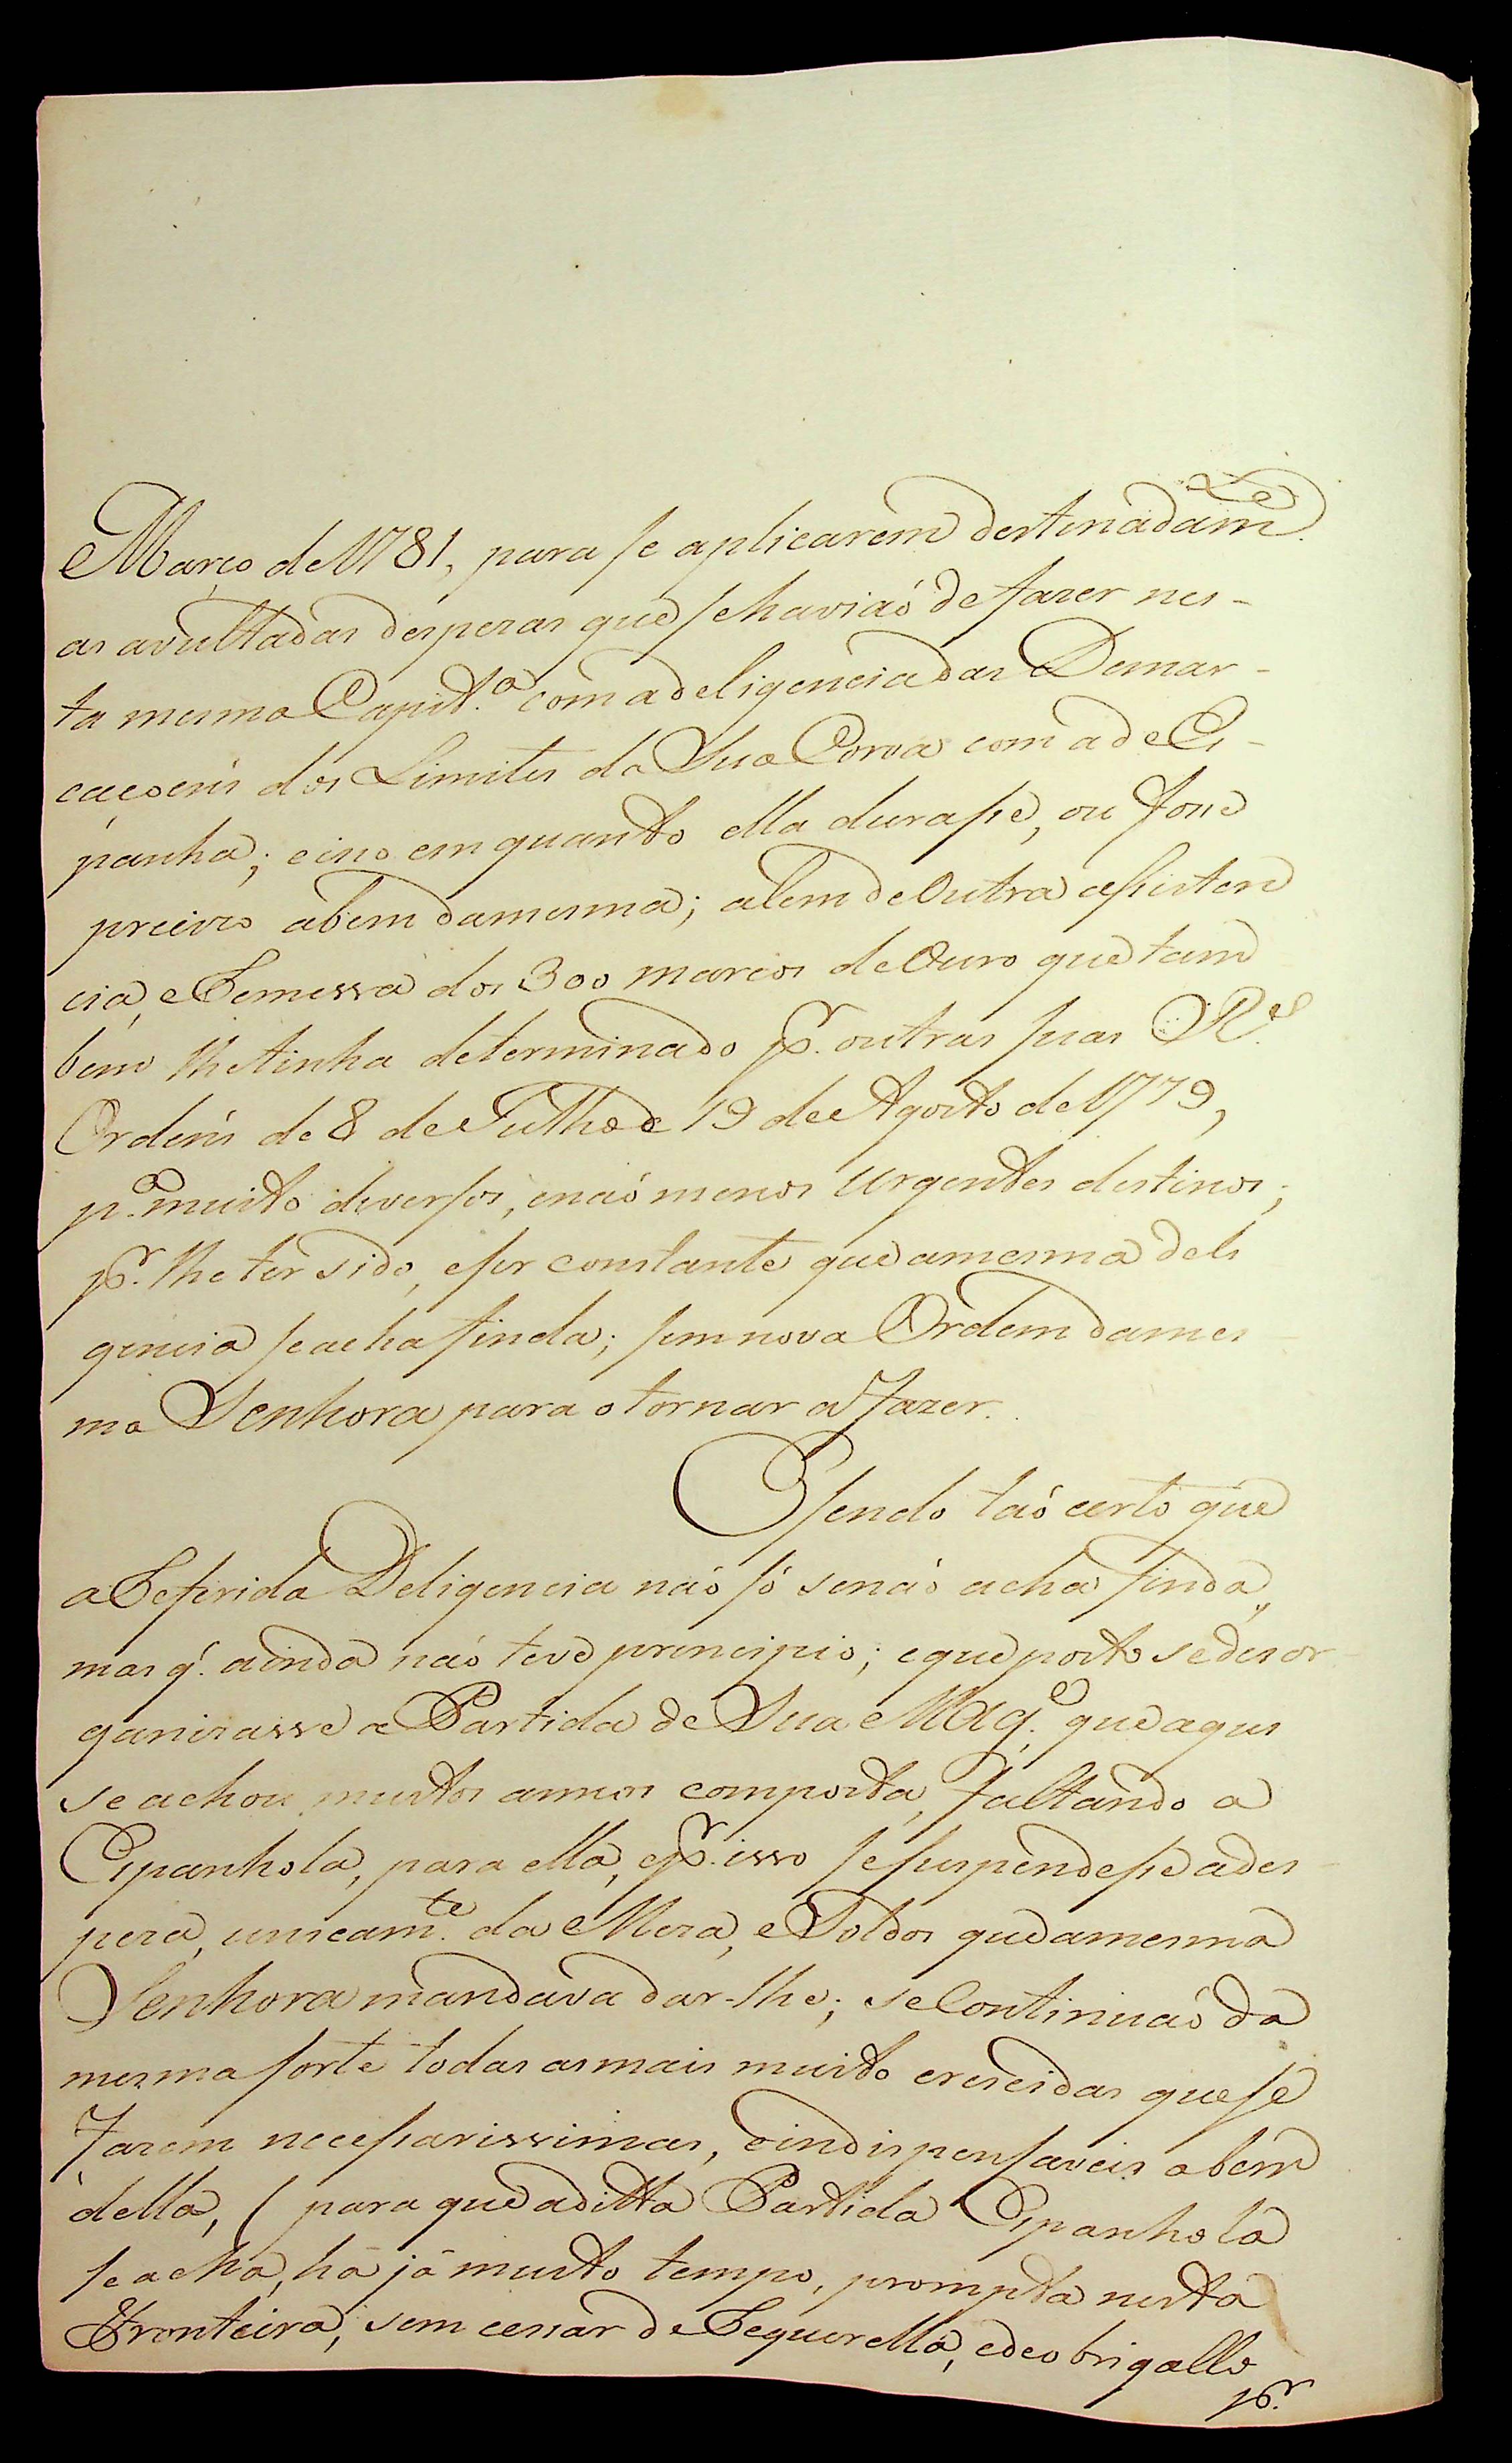 Março de 1781, para se aplicarem destinadam.te
as avultadas despezas que se haviaõ de fazer nes-
ta mesma Capit.a com a deligencia das Demar-
caçoens dos Limites da Sua Coroa com a de Es-
panha; e isso em quanto ella durasse, ou fosse
precizo a bem da mesma; alem de Outra assisten
cia, e Remessa dos 300 marcos de Ouro que tam
bem lhe tinha determinado p.r outras suas R.es
Ordens de 8 de Julho e 19 de Agosto de 1779,
p.a muito diversos, e naõ menos urgentes destinos;
p.r lhe ter sido, e ser constante que a mesma deli
gencia se acha finda; sem nova Ordem da mes
ma Senhora para o tornar a fazer.
E sendo taõ certo que
a Referida Deligencia naõ só se naõ acha finda,
mas q. ainda naõ teve principio; e que posto se desor
ganizasse a Partida de Sua Mag.e que aqui
se achou muitos annos composta, faltando a
Espanhola, para ella, e p.r isso se suspendesse a des-
peza, unicam.te da Meza, e Soldos que a mesma
Senhora mandava dar-lhe; se Continuaõ da
mesma sorte todas as mais muito crescidas que se
fazem necessarissimas, e indispensaveis a bem
della, (para que a ditta Partida Espanhola
se acha, há já muito tempo, prompta nesta
Fronteira, sem cessar de Requerella, e de obrigallo
p.r